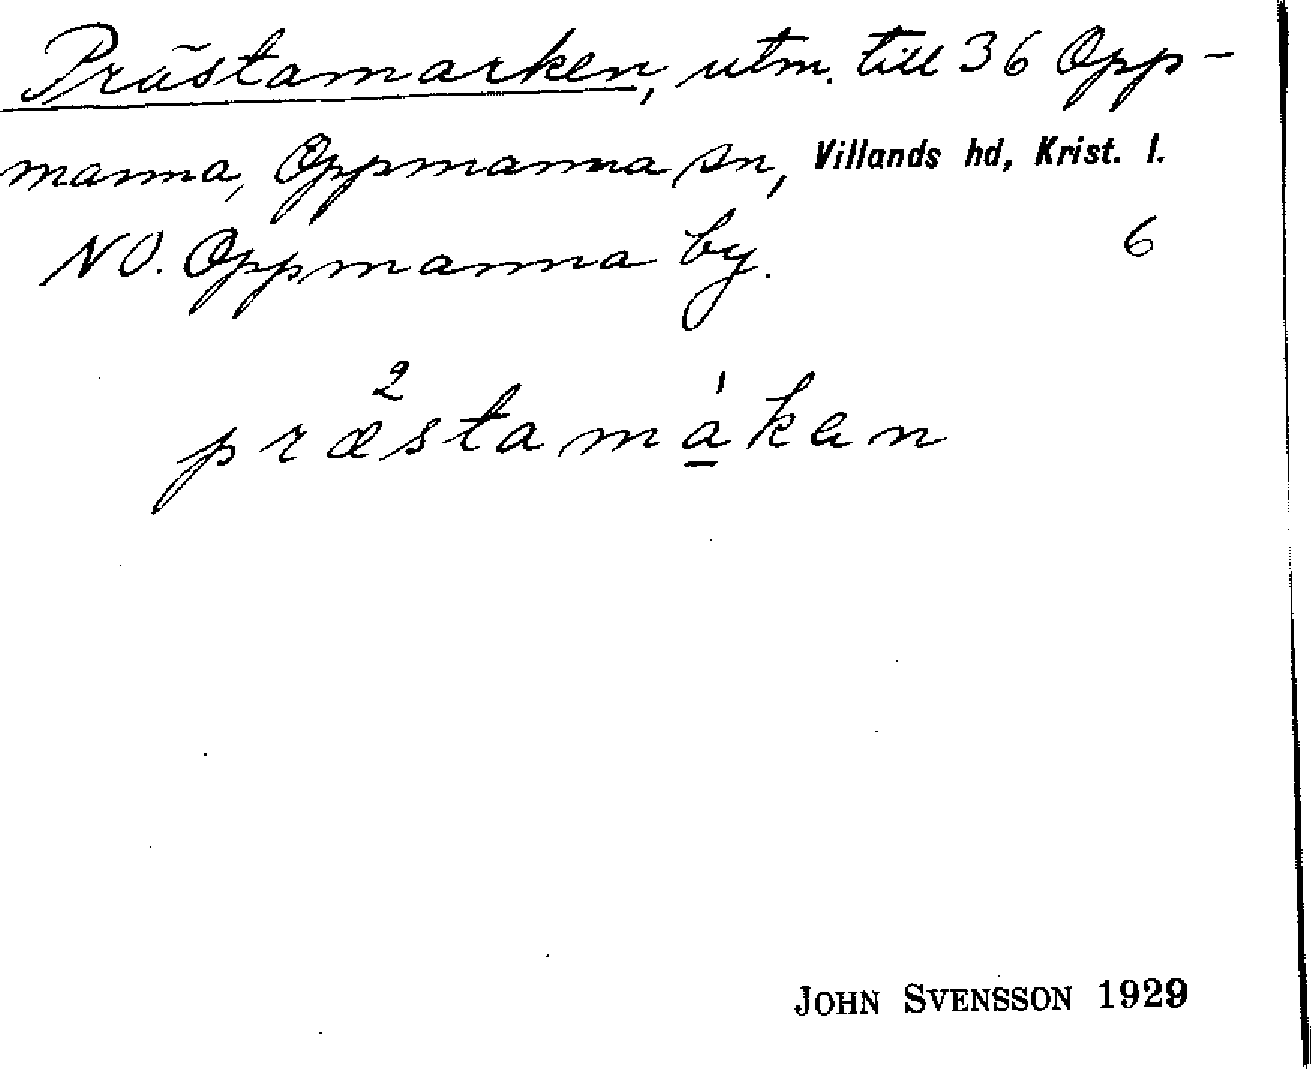 Prästamarken, utm. till 36 Opp-
manna, Oppmanna sn, Villands hd, Krist. l.
NO. Oppmanna by. 6
2 1
præstamakan
JOHN SVENSSON 1929